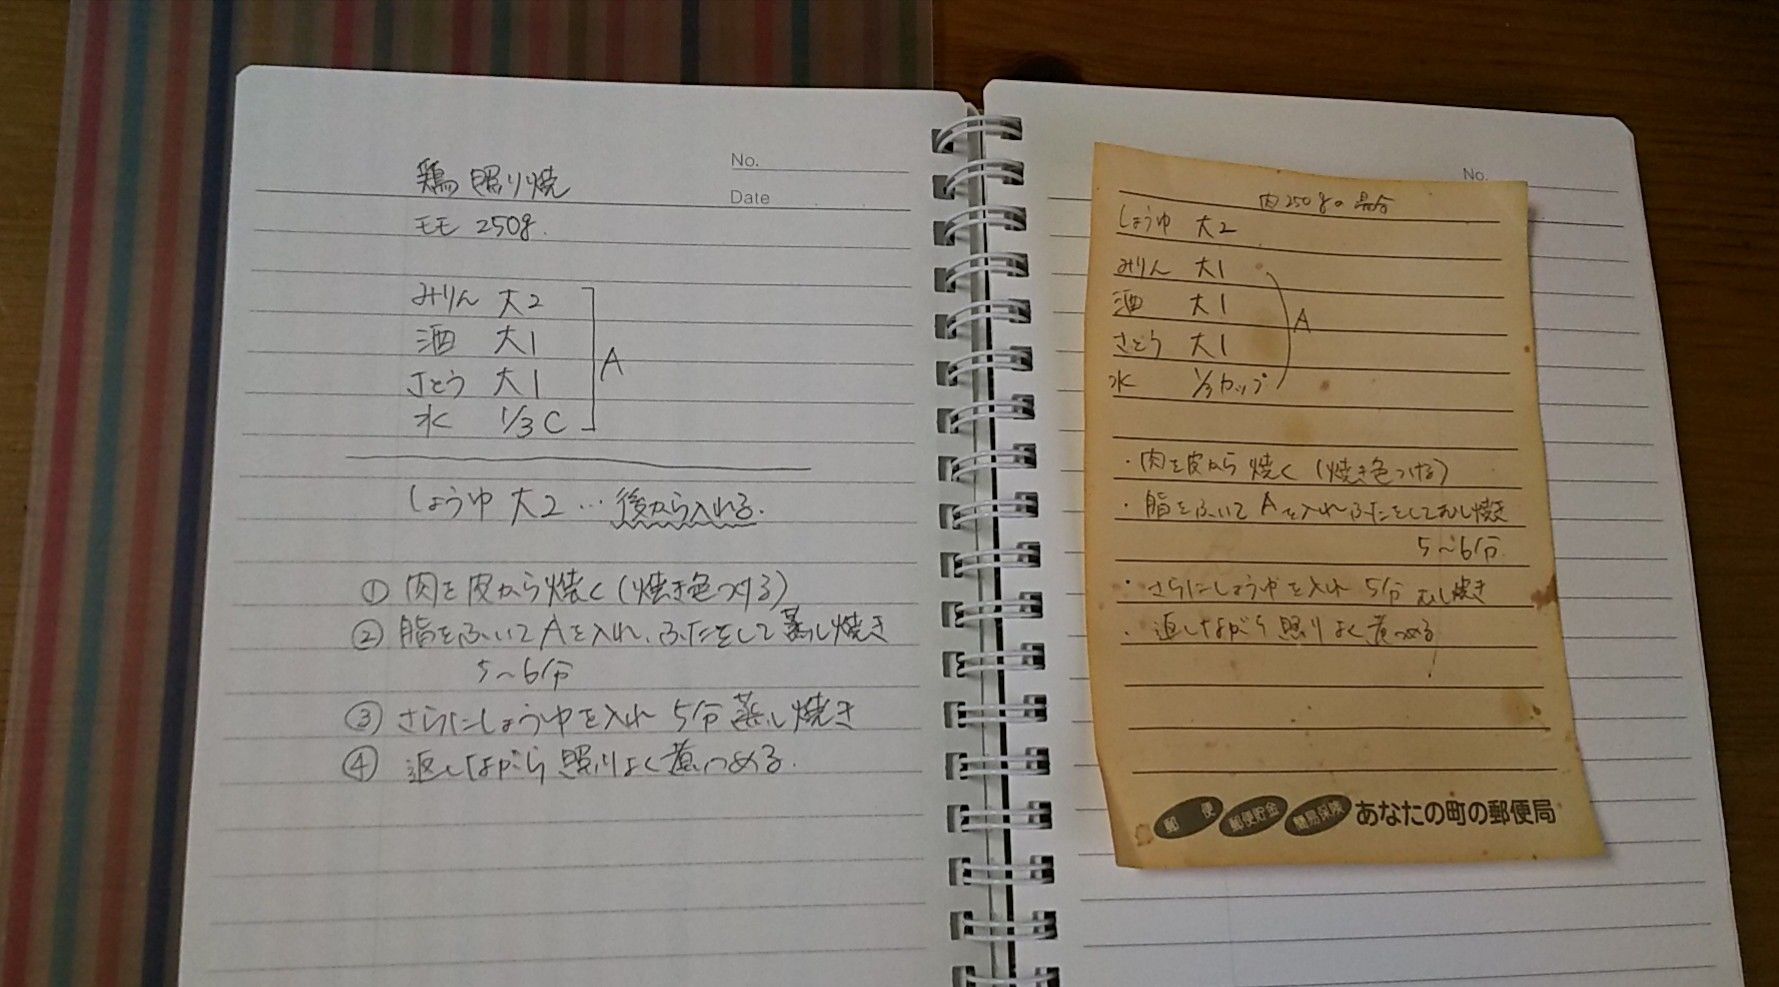 No.
Date
鶏 照り焼
モモ 250g.
みりん 大2
酒 大1
さとう 大1
水 1/3 C
A
しょうゆ 大2 … 後から入れる.
① 肉を皮から焼く(焼き色つける)
② 脂をふいてAを入れ、ふたをして蒸し焼き
5〜6分
③ さらにしょうゆを入れ 5分 蒸し焼き
④ 返しながら 照りよく煮つめる.
No.
肉250gの場合
しょうゆ 大2
みりん 大1
酒 大1
さとう 大1
水 1/3カップ
A
・肉を皮から 焼く(焼き色つける)
・脂をふいて Aを入れふたをしてむし焼き
5〜6分
・さらにしょうゆを入れ 5分 むし焼き
・返しながら 照りよく煮つめる
郵便 郵便貯金 簡易保険 あなたの町の郵便局